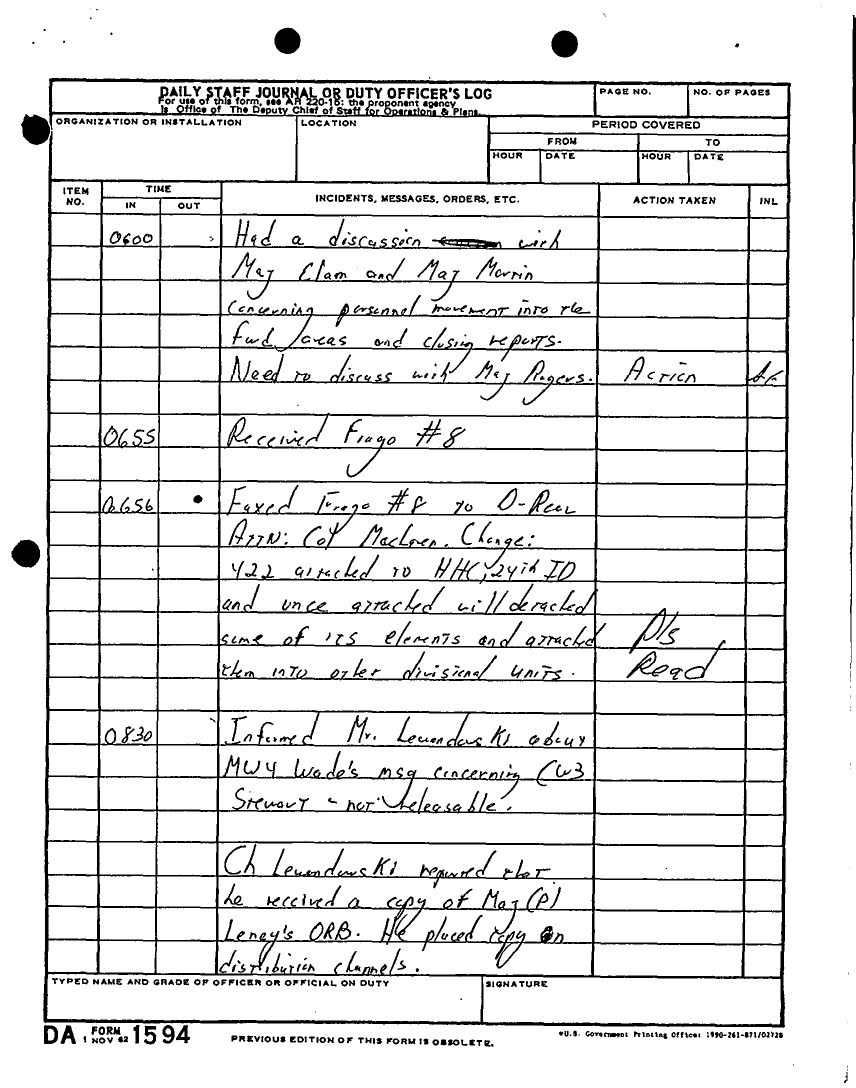 DAILY STAFF JOURNAL OR DUTY OFFICER'S LOG
For use of this form, see AR 220-15; the proponent agency
is Office of The Deputy Chief of Staff for Operations & Plans.
PAGE NO.
NO. OF PAGES
ORGANIZATION OR INSTALLATION
LOCATION
PERIOD COVERED
FROM
TO
HOUR
DATE
HOUR
DATE
ITEM NO.
TIME
IN
OUT
INCIDENTS, MESSAGES, ORDERS, ETC.
ACTION TAKEN
INL
0600 Had a discussion with
Maj Elam and Maj
concerning personnel movement into the
fwd areas and closing reports.
Need to discuss with Maj Rogers. Action
0655 Received Frago #8
0656 Faxed Frago #8 to D-Rear
ATTN: Cpt MacLaren. Change:
422 attached to HHC, 24th ID
and once attached will detached
some of its elements and attached Pls
them into other divisional units. Read
0830 Informed Mr. Lewandowski about
MW4 Wade's msg concerning CW3
Stewart - not releasable.
Ch Lewandowski reported that
he received a copy of Maj (P)
Leney's ORB. He placed copy on
distribution channels.
TYPED NAME AND GRADE OF OFFICER OR OFFICIAL ON DUTY
SIGNATURE
DA FORM 1 NOV 62 1594
PREVIOUS EDITION OF THIS FORM IS OBSOLETE.
*U.S. Government Printing Office: 1990-261-871/02728